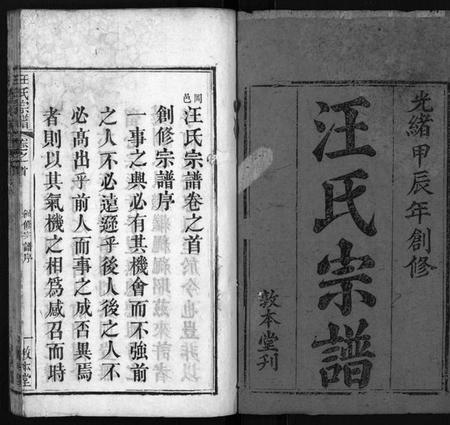 光緒甲辰年創修
汪氏宗譜
敦本堂刊
岡邑汪氏宗譜卷之首
創修宗譜序
一事之興必有其機會而不強前
之人不必遠遜乎後人後之人不
必高出乎前人而事之成否異焉
者則以其氣機之相為感召而時
汪氏宗譜
卷之首
創修宗譜序
一
敦本堂